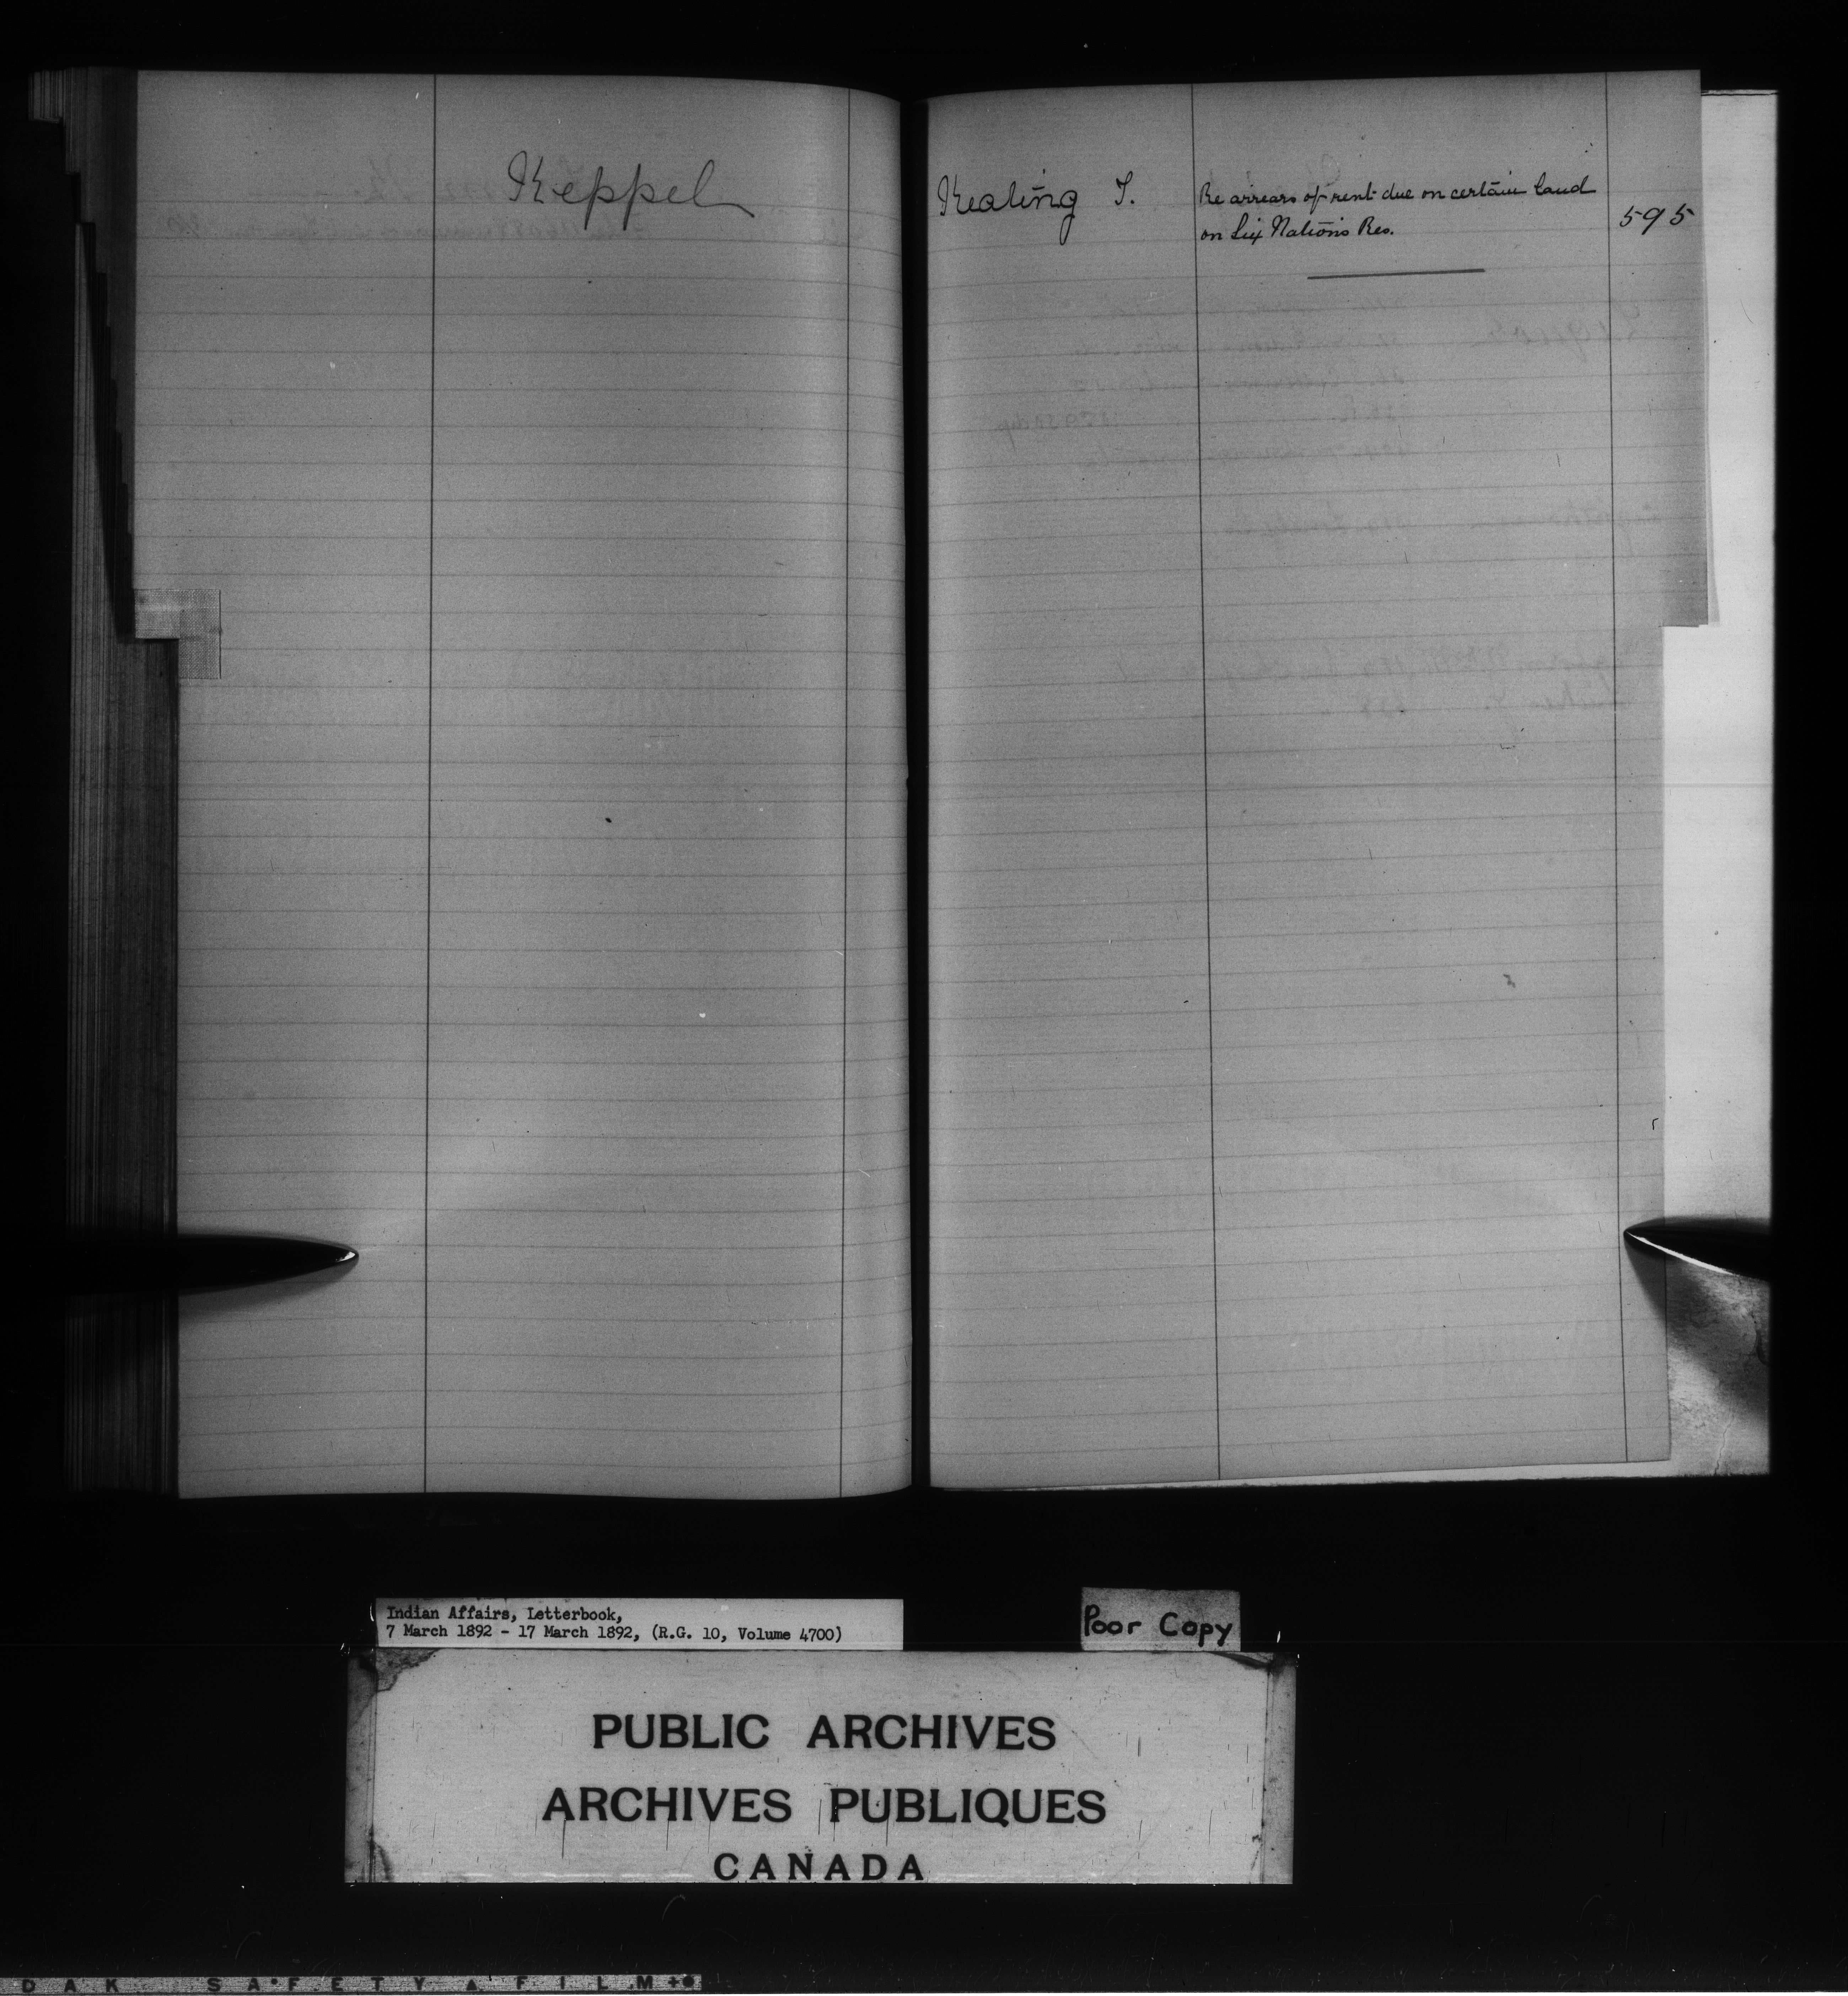 Keppel
Keating T.
Re arrears of rent due on certain land
on Six Nations Res.
595
Indian Affairs, Letterbook,
7 March 1892 - 17 March 1892, (R.G. 10, Volume 4700)
Poor Copy
PUBLIC ARCHIVES
ARCHIVES PUBLIQUES
CANADA
DAK SAFETY FILM